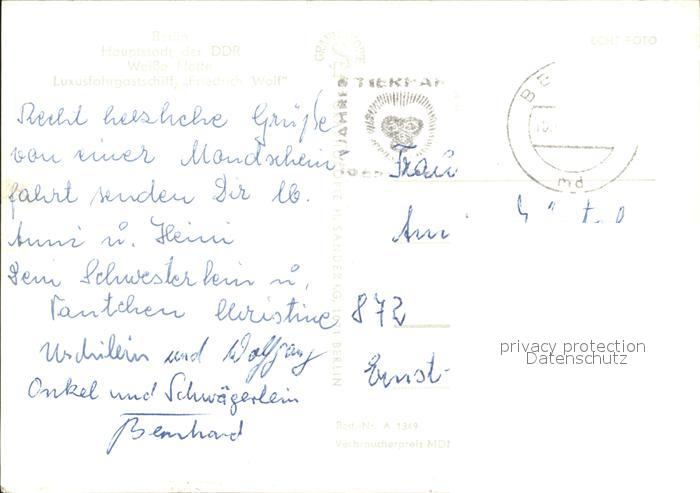 Berlin
Hauptstadt der DDR
Weiße Flotte
Luxusfahrgastschiff „Friedrich Wolf"
ECHT FOTO
JAHRE TIERPARK
md
Recht herzliche Grüße
von einer Mondschein
fahrt senden Dir lb.
Anni u. Heini
Dein Schwesterlein u.
Tantchen Christine
Uschilein und Wolfgang
Onkel und Schwägerlein
Bernhard
Frau
872
Ernst-
BERLIN
Best.-Nr. A 1349
Verbraucherpreis MDN
privacy protection
Datenschutz